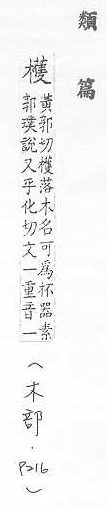 類篇
檴
黃郭切檴落木名可爲杯器素
郭璞說又乎化切文一重音一
(木部.P216)